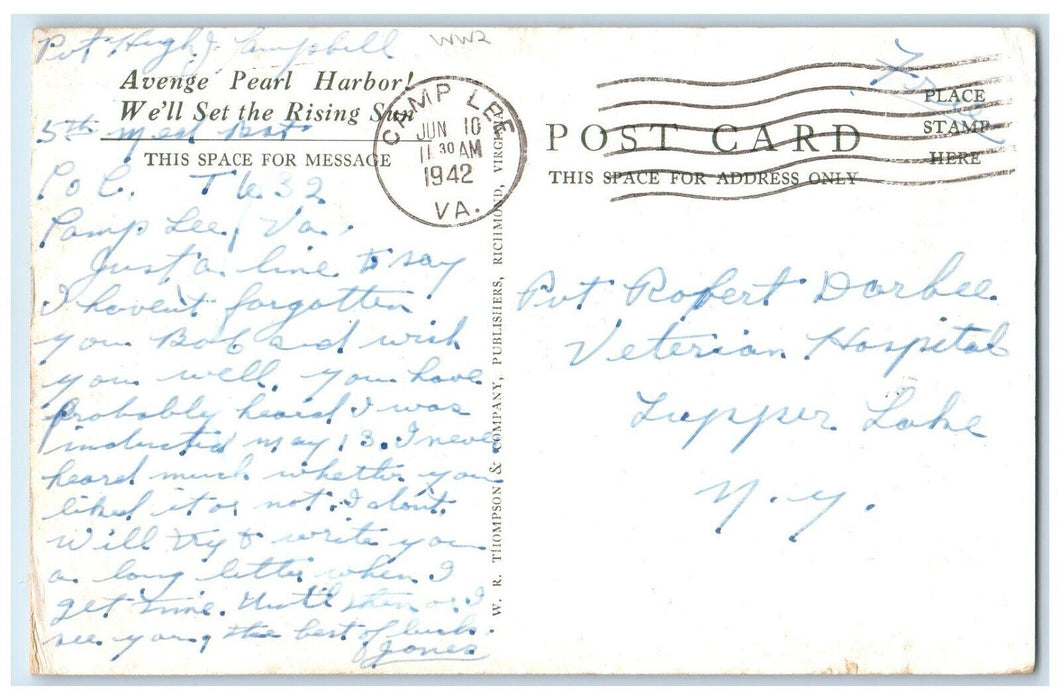 Pvt Hugh J. Campbell
WW2
Avenge Pearl Harbor!
We'll Set the Rising Sun
5th Med Bat
THIS SPACE FOR MESSAGE
Co C. T 632
Camp Lee, Va.
Just a line to say
I haven't forgotten
you Bob and wish
you well. You have
probably heard I was
inducted May 13. I never
heard much whether you
liked it or not. I don't.
Will try to write you
a long letter when I
get time. Until then or I
see you, the best of luck.
Jones
CAMP LEE
JUN 10
11 30 AM
1942
VA.
W. R. THOMPSON & COMPANY, PUBLISHERS, RICHMOND, VIRGINIA
Free
PLACE
STAMP
HERE
POST CARD
THIS SPACE FOR ADDRESS ONLY
Pvt Robert Darbee
Veterian Hospital
Tupper Lake
N.Y.